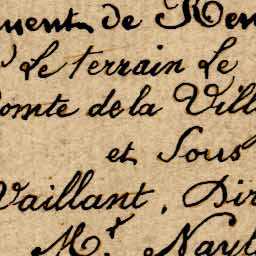 ment de Ren
Le terrain Le
Comte de la Vill
et Sous
Vaillant, Dir
Mr. Nayl